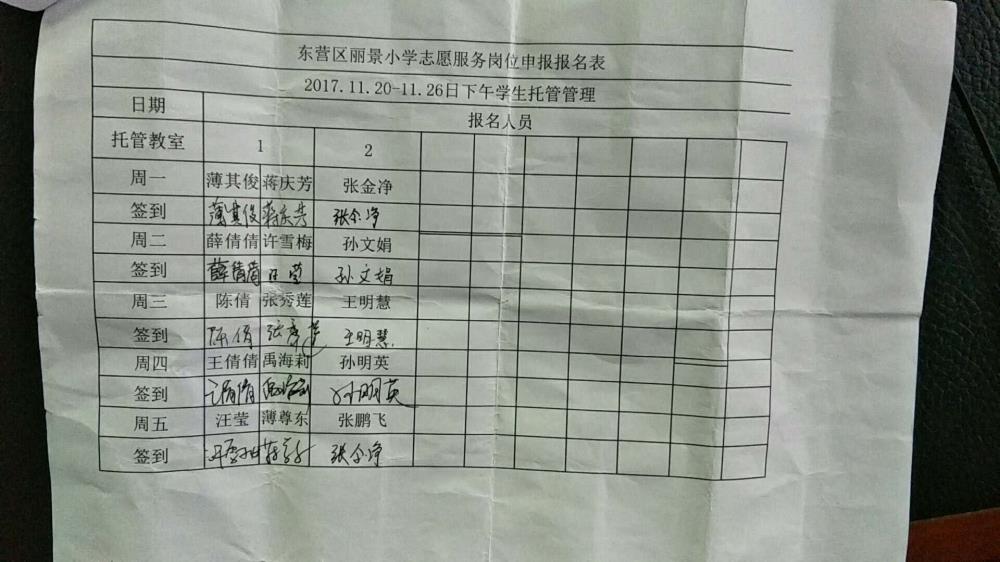 东营区丽景小学志愿服务岗位申报报名表
2017.11.20-11.26日下午学生托管管理
日期 报名人员
托管教室 1 2
周一 薄其俊 蒋庆芳 张金净
签到 薄其俊 蒋庆芳 张金净
周二 薛倩倩 许雪梅 孙文娟
签到 薛倩倩 汪莹 孙文娟
周三 陈倩 张秀莲 王明慧
签到 陈倩 张秀莲 王明慧
周四 王倩倩 禹海莉 孙明英
签到 王倩倩 禹海莉 孙明英
周五 汪莹 薄尊东 张鹏飞
签到 张金净